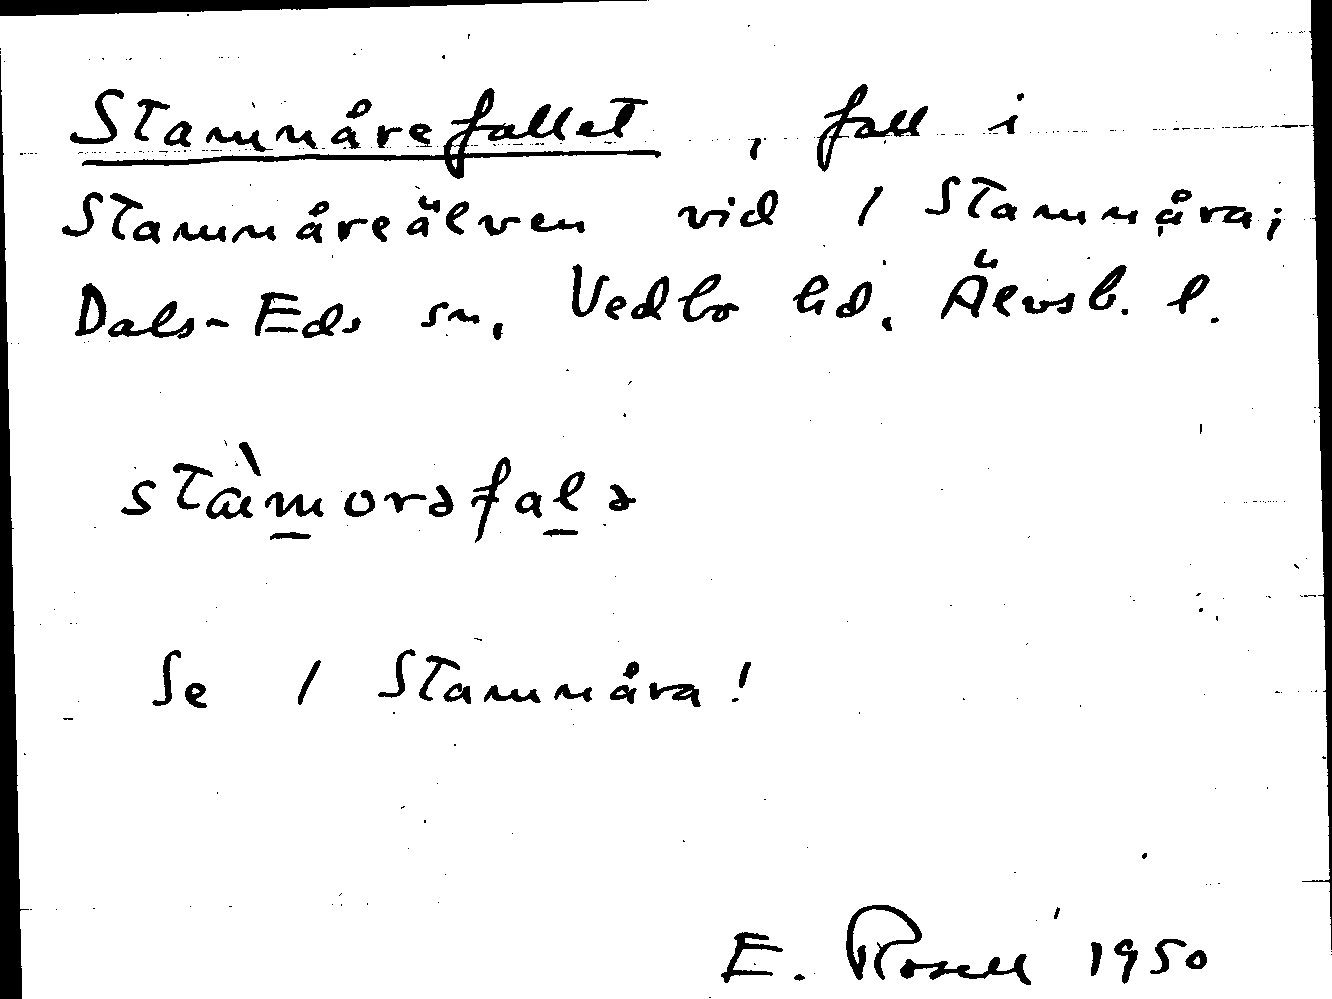 Stamnårefallet, fall i
Stamnåreälven vid 1 Stamnåra;
Dals-Eds sn, Vedbo hd, Älvsb. l.
stàm̲orəfal̲ə
Se 1 Stamnåra!
E. Rosell 1950